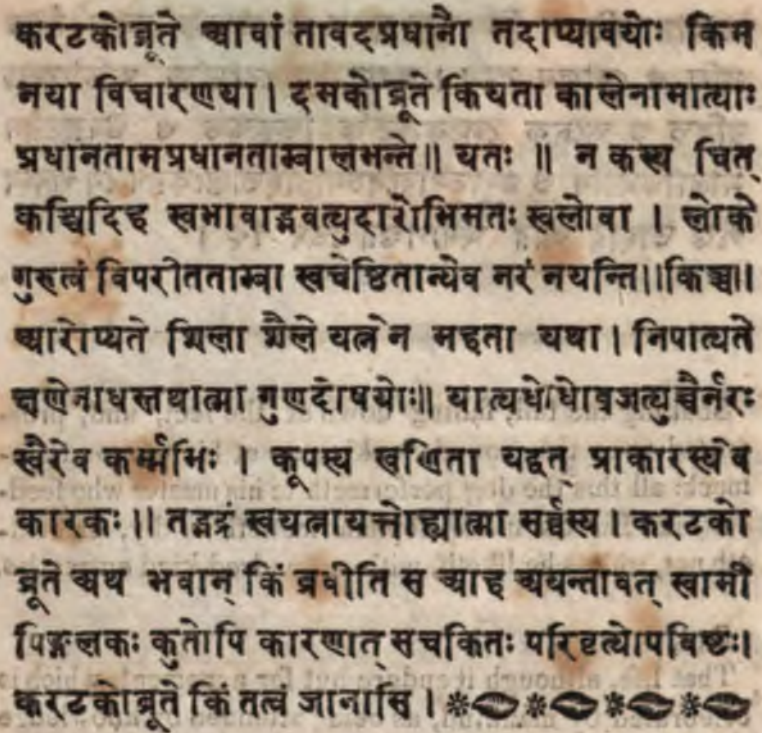 करटकोब्रूते आवां तावदप्रधानौ तदाप्यावयोः किम
नया विचारणया। दमकोब्रूते कियता कालेनामात्याः
प्रधानतामप्रधानताम्वालभन्ते॥ यतः ॥ न कस्य चित्
कश्चिदिह स्वभावाद्भवत्युदारोभिमतः खलोवा । लोके
गुरुत्वं विपरीतताम्वा स्वचेष्टितान्येव नरं नयन्ति॥किञ्च॥
आरोप्यते शिला शैले यत्नेन महता यथा। निपात्यते
क्षणेनाधस्तथात्मा गुणदोषयोः॥ यात्यधोधोव्रजत्युच्चैर्नरः
स्वैरेव कर्म्मभिः । कूपस्य खणिता यद्वत् प्राकारस्येव
कारकः॥ तद्भद्रं स्वयत्नायत्तोह्यात्मा सर्व्वस्य। करटको
ब्रूते अथ भवान् किं ब्रवीति स आह अयन्तावत् स्वामी
पिङ्गलकः कुतोपि कारणात् सचकितः परिवृत्योपविष्टः।
करटकोब्रूते किं तत्वं जानासि।